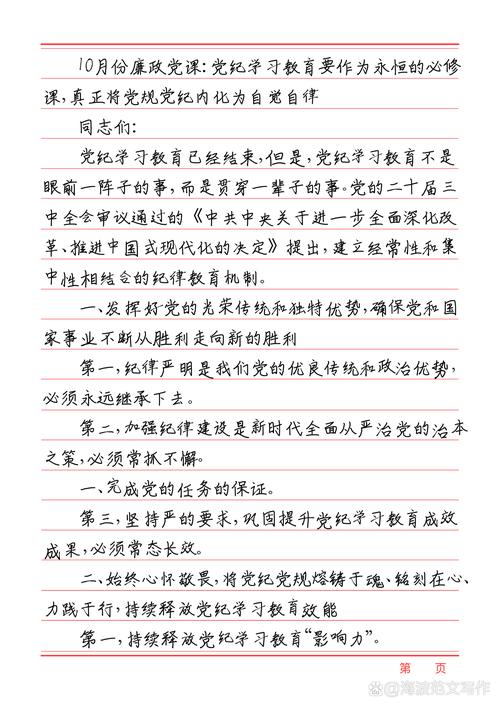 10月份廉政党课:党纪学习教育要作为永恒的必修
课,真正将党规党纪内化为自觉自律
同志们:
党纪学习教育已经结束,但是,党纪学习教育不是
眼前一阵子的事,而是贯穿一辈子的事。党的二十届三
中全会审议通过的《中共中央关于进一步全面深化改
革、推进中国式现代化的决定》提出,建立经常性和集
中性相结合的纪律教育机制。
一、发挥好党的光荣传统和独特优势,确保党和国
家事业不断从胜利走向新的胜利
第一,纪律严明是我们党的优良传统和政治优势,
必须永远继承下去。
第二,加强纪律建设是新时代全面从严治党的治本
之策,必须常抓不懈。
一、完成党的任务的保证。
第三,坚持严的要求,巩固提升党纪学习教育成效
成果,必须常态长效。
二、始终心怀敬畏,将党纪党规熔铸于魂、铭刻在心、
力践于行,持续释放党纪学习教育效能
第一,持续释放党纪学习教育“影响力”。
第 页
海波范文写作